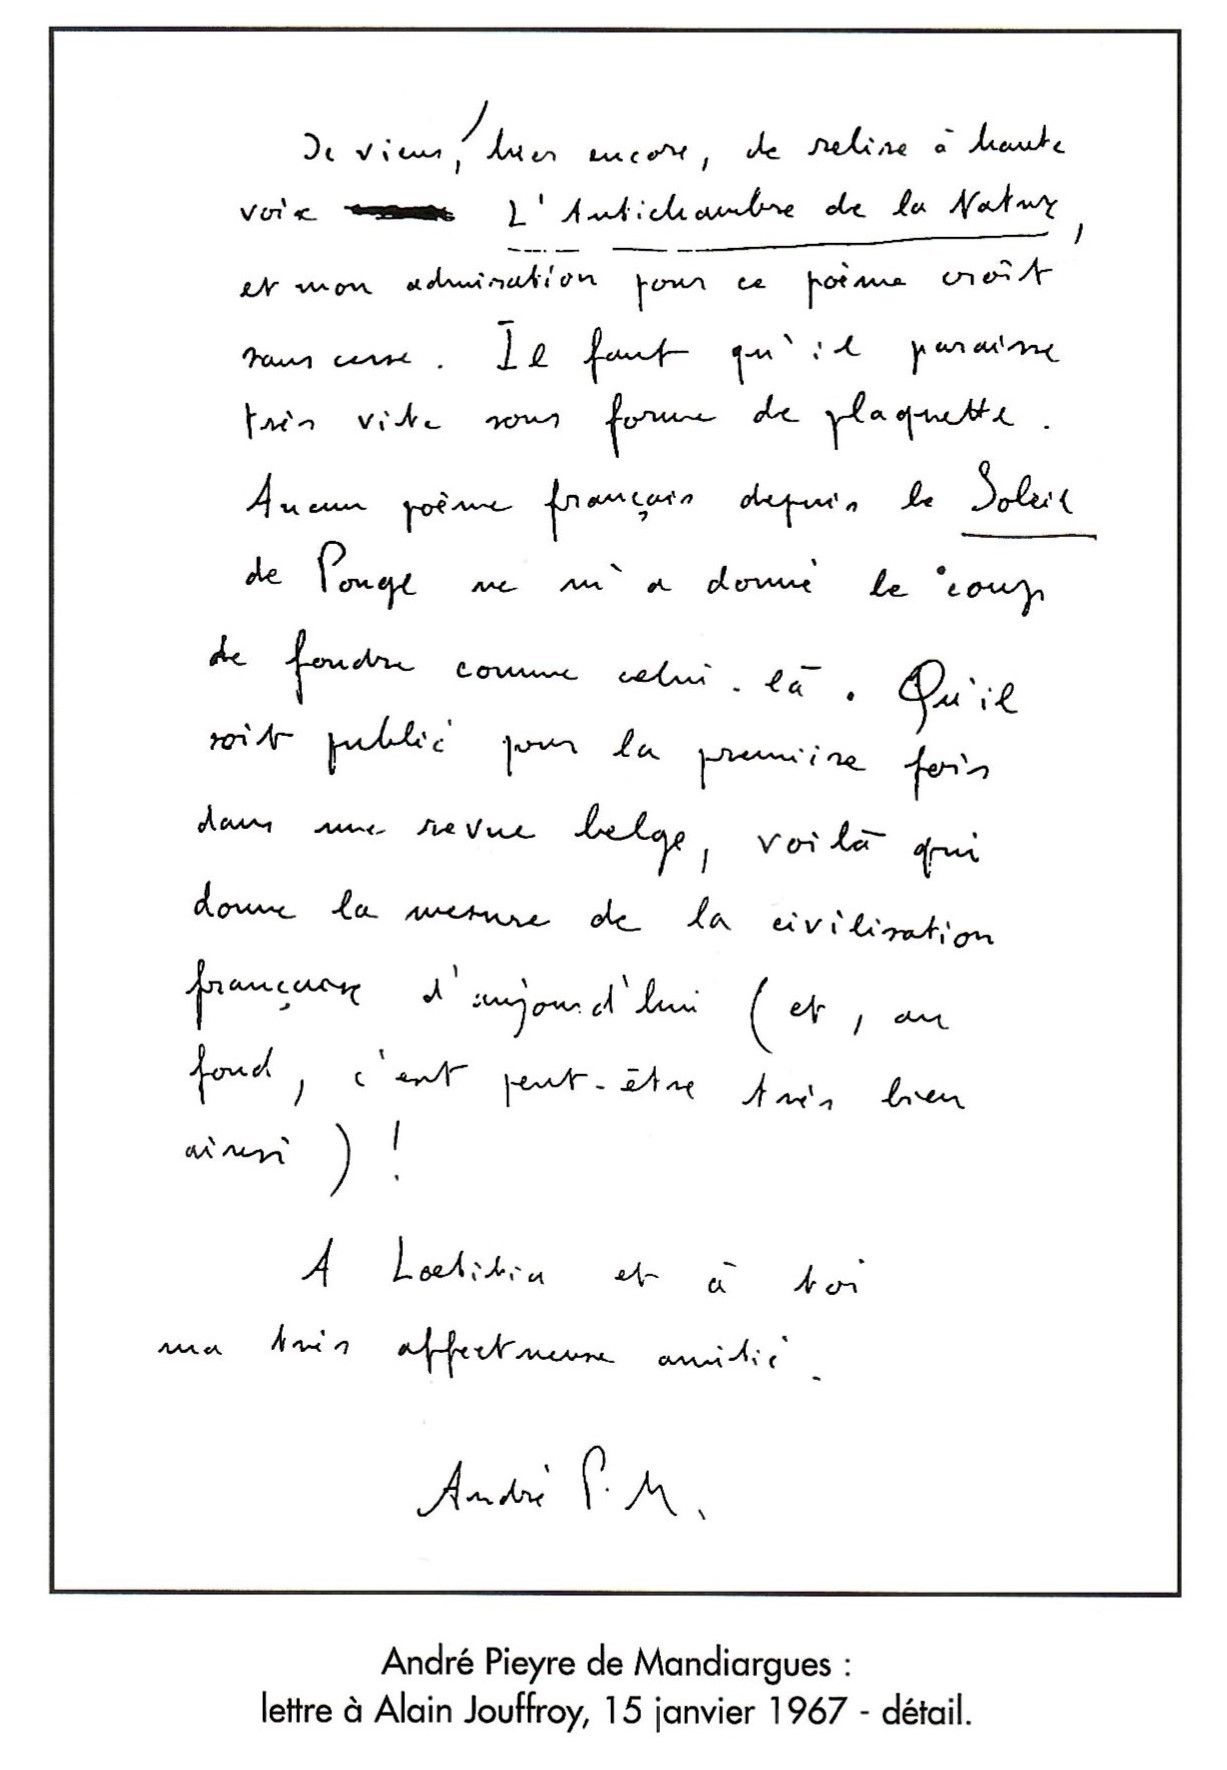 Je viens, hier encore, de relire à haute
voix L'Antichambre de la Nature,
et mon admiration pour ce poème croît
sans cesse. Il faut qu'il paraisse
très vite sous forme de plaquette.
Aucun poème français depuis le Soleil
de Ponge ne m'a donné le coup
de foudre comme celui-là. Qu'il
soit publié pour la première fois
dans une revue belge, voilà qui
donne la mesure de la civilisation
française d'aujourd'hui (et, au
fond, c'est peut-être très bien
ainsi) !
A Lœtitia et à toi
ma très affectueuse amitié.
André P. M.
André Pieyre de Mandiargues :
lettre à Alain Jouffroy, 15 janvier 1967 - détail.